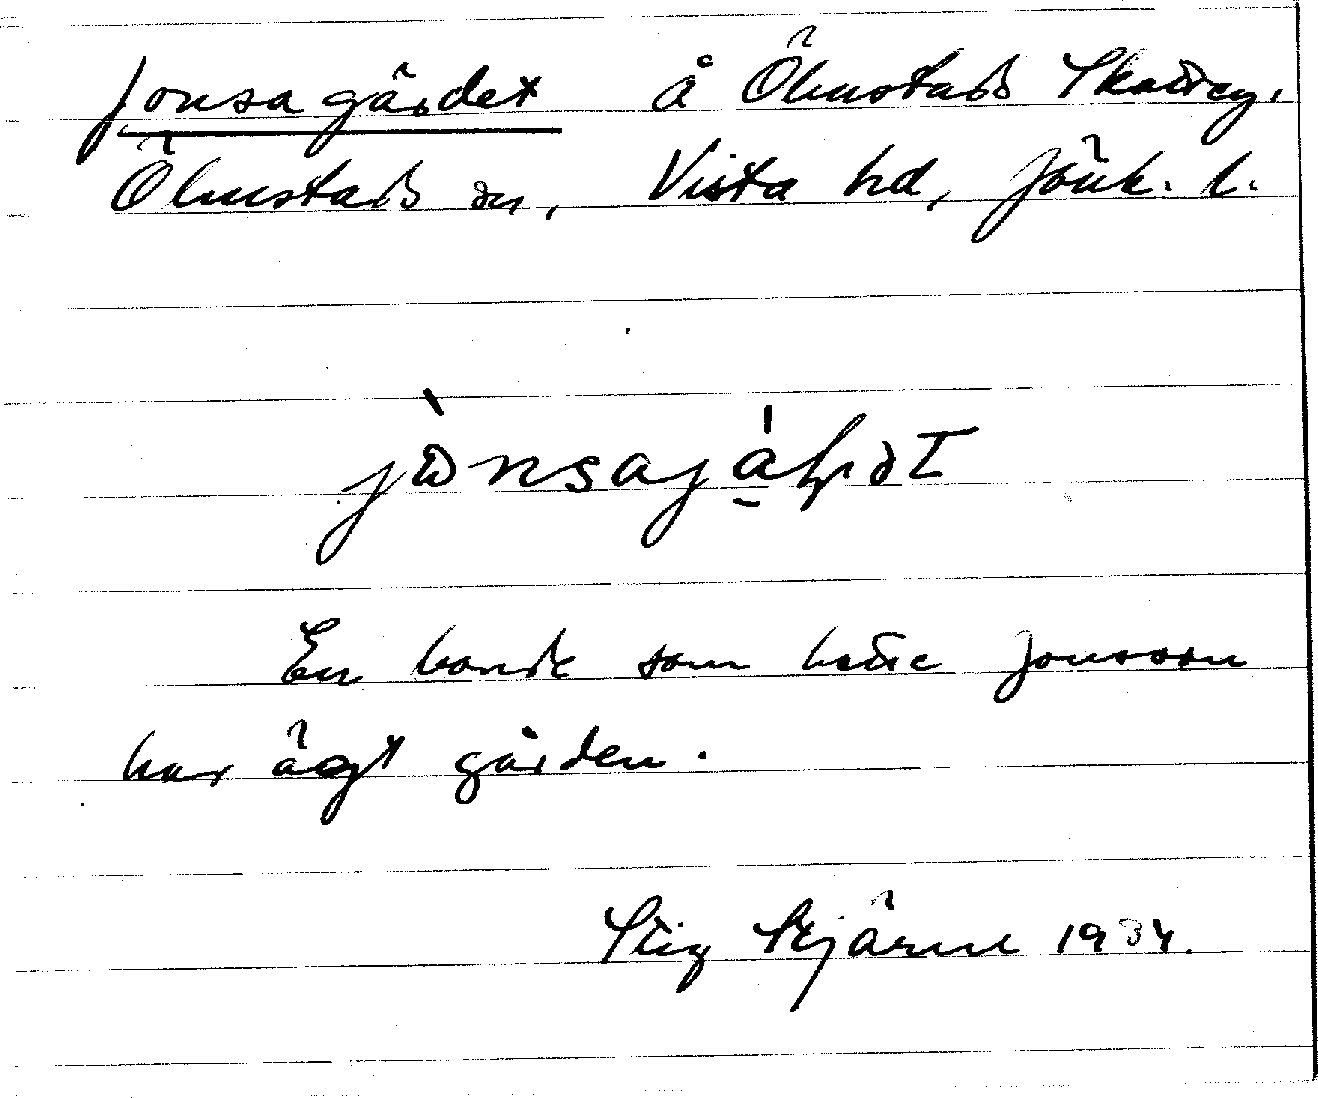 Jonsagärdet å Ölmstads Skatteg.
Ölmstads sn, Vista hd, Jönk. l.
En bonde som hette Jonsson
har ägt gården.
Stig Stjärne 1934.